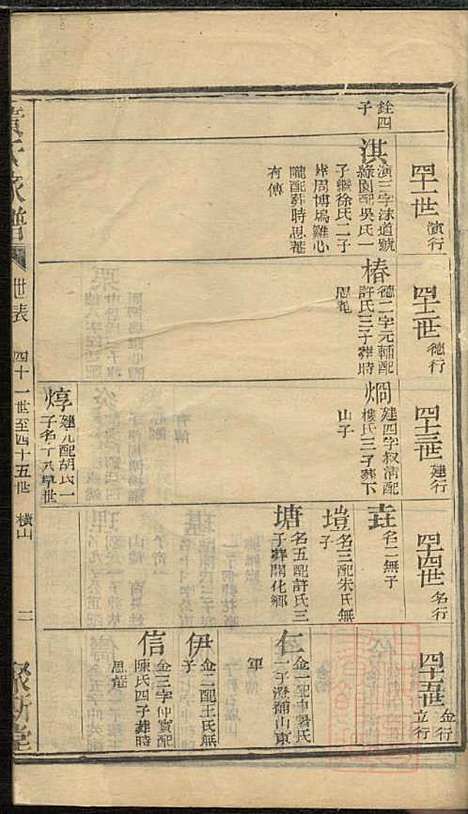 四十一世 演行
銓四
子
淇
演三字沫道號
綠園配吳氏一
子繼徐氏二子
葬周博塢雞心
隴配葬時思菴
有傳
四十二世 德行
椿
德二字元輔配
許氏三子葬時
思菴
四十三世 建行
烱
建四字叔清配
樓氏三子葬下
山子
焞
建九配胡氏一
四十四世 名行
名二無子
塏
名三配朱氏無
塘
名五配許氏三
子葬開化鄉
四十五世 金行
立行
仁
金一配申屠氏
一子澄補山東
軍
伊
金二配王氏無
信
金三字仲實配
陳氏四子葬時
思菴
氏家譜 世表 四十一世至四十五世 橫山 二